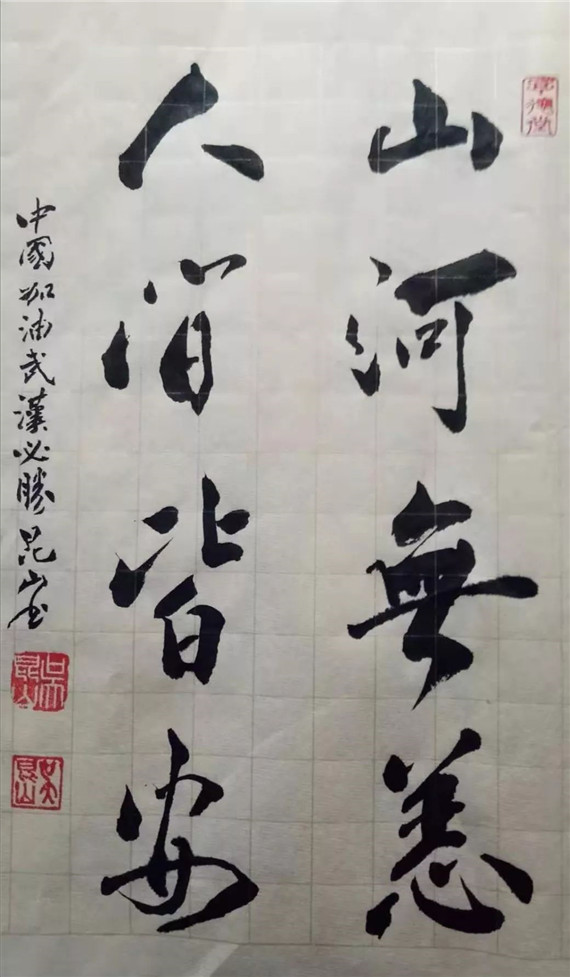 山河無恙
人间皆安
中國加油武漢必勝昆山书